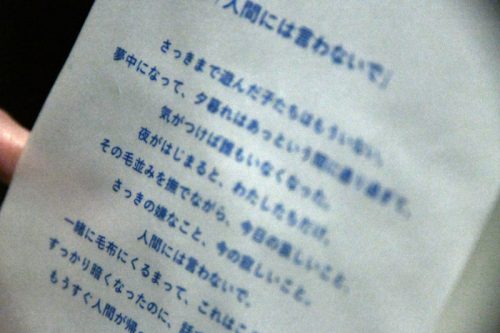 「人間には言わないで」
さっきまで遊んだ子たちはもういない。
夢中になって、夕暮れはあっという間に通り過ぎて。
気がつけば誰もいなくなった。
夜がはじまると、わたしたちだけ。
その毛並みを撫でながら、今日の楽しいこと、
さっきの嫌なこと、今の寂しいこと。
人間には言わないで。
一緒に毛布にくるまって、これはこ
すっかり暗くなったのに、話
もうすぐ人間が帰っ